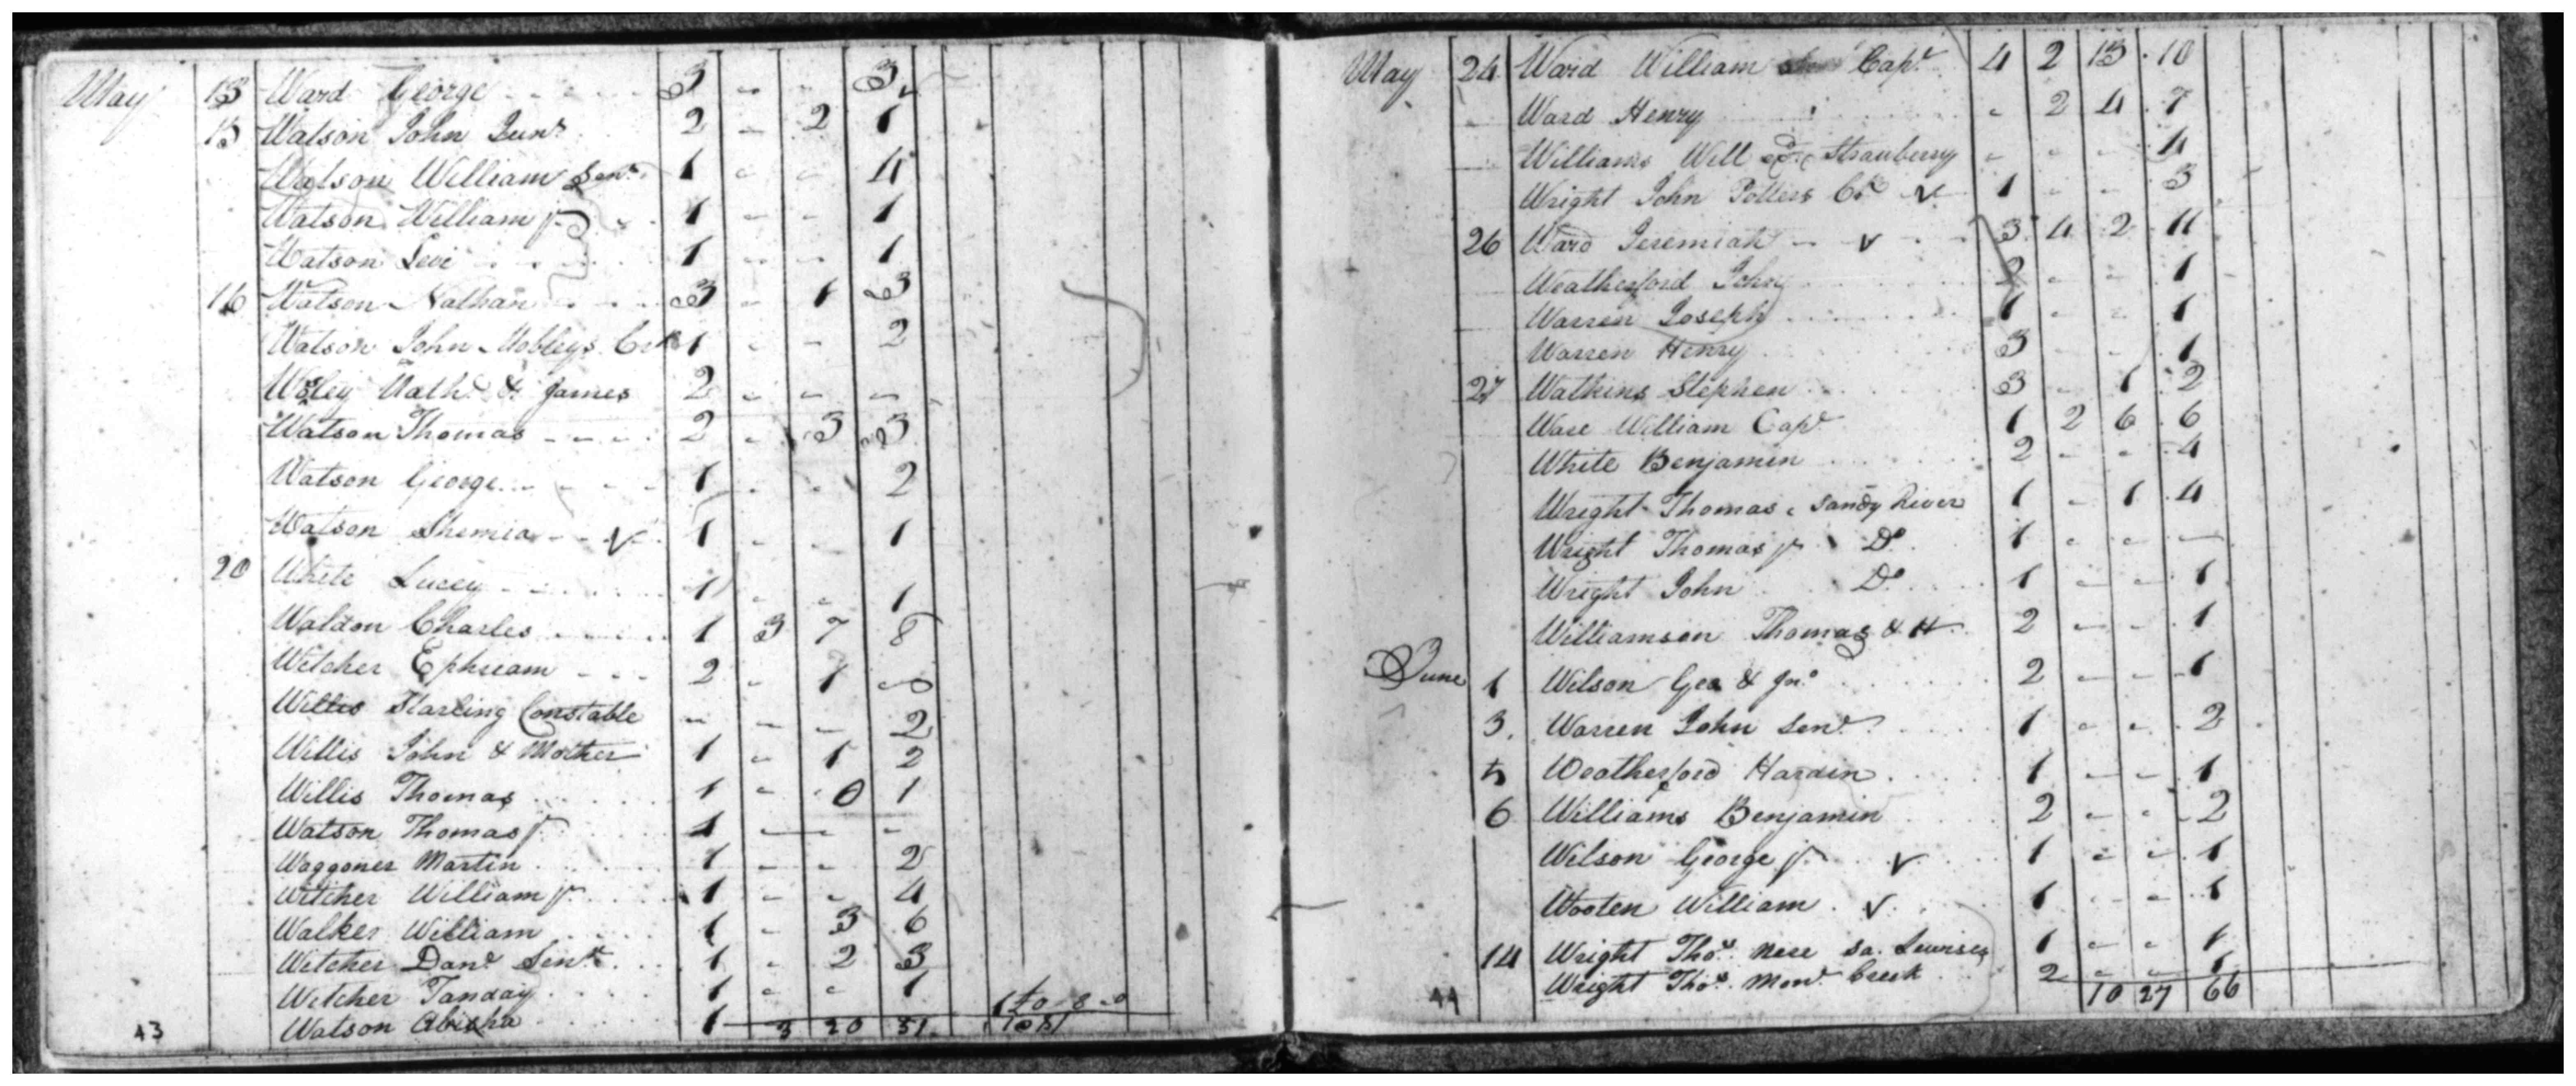 May 13 Ward George - - - - 3 - - 3
15 Watson John Junr 2 - 2 1
Watson William Senr. 1 - - 4
Watson William jr. 1 - - 1
Watson Levi - - - 1 - - 1
16 Watson Nathan - - - 3 - 1 3
Watson John Mobleys Crk 1 - - 2
Wesley Nath. & James 2 - - -
Watson Thomas - - - - 2 - 3 3
Watson George - - - - 1 - - 2
Watson Shemia - - V 1 - - 1
20 White Lucey - - - 1 - - 1
Waldon Charles - - - - 1 3 7 8
Witcher Ephream - - - 2 - 1
Willis Starling Constable - - - 2
Willis John & Mother 1 - 1 2
Willis Thomas 1 - 0 1
Watson Thomas jr. 1 - - -
Waggoner Martin 1 - - 2
Witcher William jr. 1 - - 4
Walker William 1 - 3 6
Witcher Danl. Senr. 1 - 2 3
Witcher Tanday 1 - - 1
Watson Abisha 1 3 20 51
43
May 24 Ward William Capt 4 2 13 10
Ward Henry - 2 4 7
Williams Will Strauberry - - - 4
Wright John Potters Ck V 1 - - 3
26 Ward Jeremiah - V - - 3 4 2 11
Weatherford John 2 - - 1
Warren Joseph 1 - - 1
Warren Henry 3 - - 1
27 Watkins Stephen 3 - 1 2
Ware William Capt 1 2 6 6
White Benjamin 2 - - 4
Wright Thomas Sandy River 1 - 1 4
Wright Thomas jr. Do. 1 - - -
Wright John Do. 1 - - 1
Williamson Thomas & H 2 - - 1
June 1 Wilson Geo & Jno. 2 - - 1
3. Warren John Senr. 1 - - 2
5 Weatherford Hardin 1 - - 1
6 Williams Benjamin 2 - - 2
Wilson George jr. V 1 - - 1
Wooten William V 1 - - 1
14 Wright Thos. Nere 1 - - 1
Wright Thos. Creek 2 - - 1
44 10 27 66